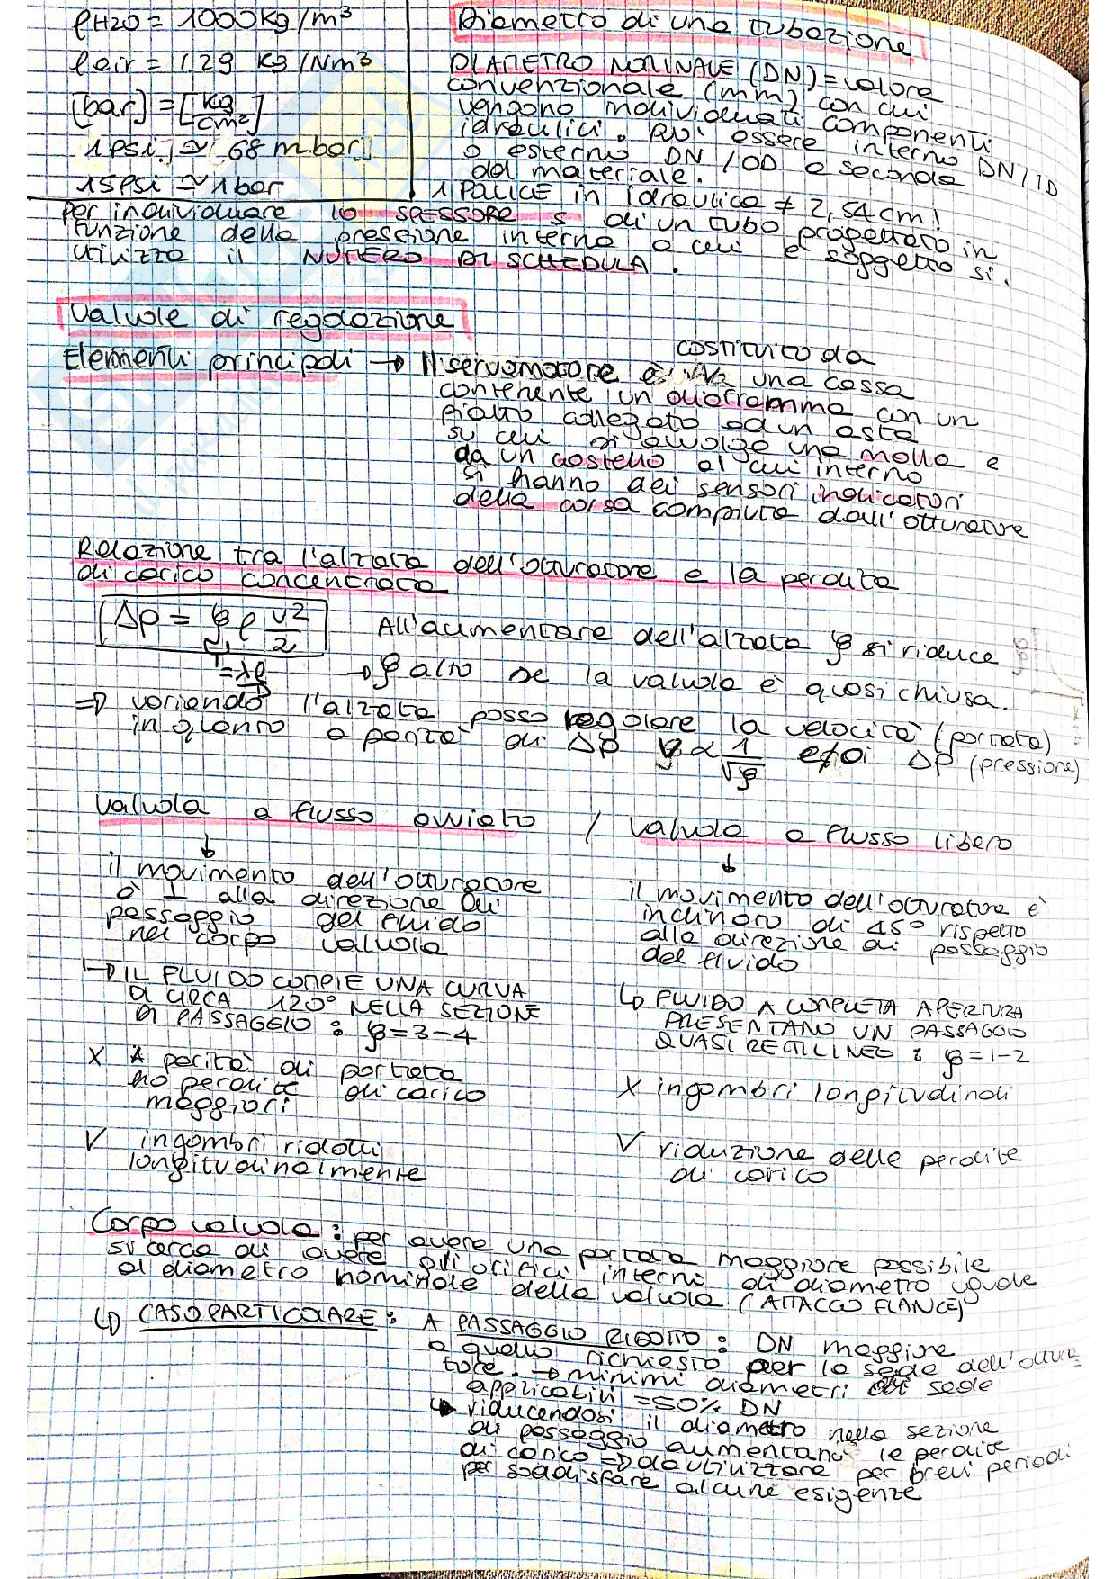 ρH2O = 1000 kg/m³
ρair = 1,29 kg/Nm³
[bar] = [kg/cm²]
1 psi ≃ 68 mbar
15 psi ≃ 1 bar
Diametro di una tubazione
DIAMETRO NOMINALE (DN) = valore
convenzionale (mm) con cui
vengono individuati componenti
idraulici. Può essere interno DN/ID
o esterno DN/OD a seconda
del materiale.
1 POLLICE in idraulica ≠ 2,54 cm!
Per individuare lo SPESSORE s di un tubo progettato in
funzione della pressione interna a cui è soggetto si
utilizza il NUMERO DI SCHEDULA.
Valvole di regolazione
Elementi principali → Il servomotore è costituito da
una cassa
contenente un diaframma con un
piatto collegato ad un asta
su cui si avvolge una molla e
da un castello al cui interno
si hanno dei sensori indicatori
della corsa compiuta dall'otturatore
Relazione tra l'alzata dell'otturatore e la perdita
di carico concentrata
Δp = ξ ρ v²/2
All'aumentare dell'alzata ξ si riduce
→ ξ alto se la valvola è quasi chiusa.
⇒ variando l'alzata posso regolare la velocità (portata)
in quanto a parità di Δp v ∝ 1/√ξ e poi Δp (pressione)
Valvola a flusso avviato / Valvola a flusso libero
↓
il movimento dell'otturatore
è ⊥ alla direzione di
passaggio del fluido
nel corpo valvola
→ IL FLUIDO COMPIE UNA CURVA
DI CIRCA 120° NELLA SEZIONE
DI PASSAGGIO : ξ = 3-4
X A parità di portata
ho perdite di carico
maggiori
V ingombri ridotti
longitudinalmente
↓
il movimento dell'otturatore è
inclinato di 45° rispetto
alla direzione di passaggio
del fluido
↳ FLUIDO A COMPLETA APERTURA
PRESENTANO UN PASSAGGIO
QUASI RETTILINEO : ξ = 1-2
X ingombri longitudinali
V riduzione delle perdite
di carico
Corpo valvola : per avere una portata maggiore possibile
si cerca di avere gli orifici interni di diametro uguale
al diametro nominale della valvola (ATTACCO FLANGE)
↳ CASO PARTICOLARE : A PASSAGGIO RIDOTTO : DN maggiore
a quello richiesto per la sede dell'ottura-
tore. → minimi diametri di sede
applicabili = 50% DN
↳ riducendosi il diametro nella sezione
di passaggio aumentano le perdite
di carico ⇒ da utilizzare per brevi periodi
per soddisfare alcune esigenze